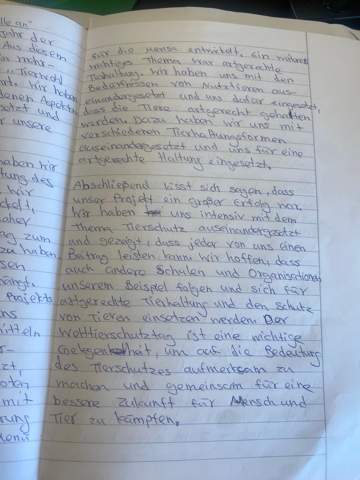 le an"
jahr der
Aus diesem
n mehr-
"Tierwohl
t. Wir haben
denen Aspekten
setzt und
r unsere
haben wir
tung des
wir
ckelt,
aher
ag zum
zu haben
sen
eingt.
Projekts
ns
itteln
r-
zt,
oten
mit
rung
Menü
für die Mensa entwickelt. Ein weiteres
wichtiges Thema war artgerechte
Tierhaltung. Wir haben uns mit den
Bedürfnissen von Nutztieren aus-
einandergesetzt und uns dafür eingesetzt,
dass die Tiere artgerecht gehalten
werden. Dazu haben wir uns mit
verschiedenen Tierhaltungsformen
auseinandergesetzt und uns für eine
artgerechte Haltung eingesetzt.
Abschließend lässt sich sagen, dass
unser Projekt ein großer Erfolg war.
Wir haben uns intensiv mit dem
Thema Tierschutz auseinandergesetzt
und gezeigt, dass jeder von uns einen
Beitrag leisten kann. Wir hoffen, dass
auch andere Schulen und Organisationen
unserem Beispiel folgen und sich für
artgerechte Tierhaltung und den Schutz
von Tieren einsetzen werden. Der
Welttierschutztag ist eine wichtige
Gelegenheit, um auf die Bedeutung
des Tierschutzes aufmerksam zu
machen und gemeinsam für eine
bessere Zukunft für Mensch und
Tier zu kämpfen.